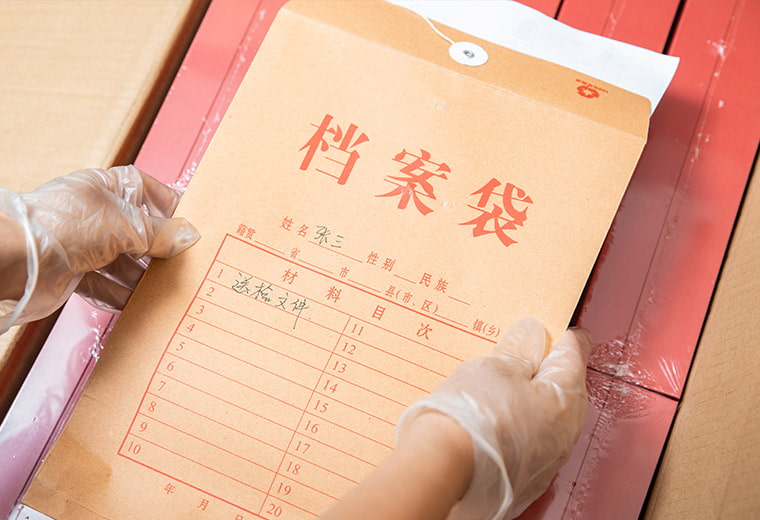 档案袋
姓名 张三 性别 民族
籍贯 省 市 县(市、区) 镇(乡)
材料目次
1 送检文件 11
2 12
3 13
4 14
5 15
6 16
7 17
8 18
9 19
10 20
年 月